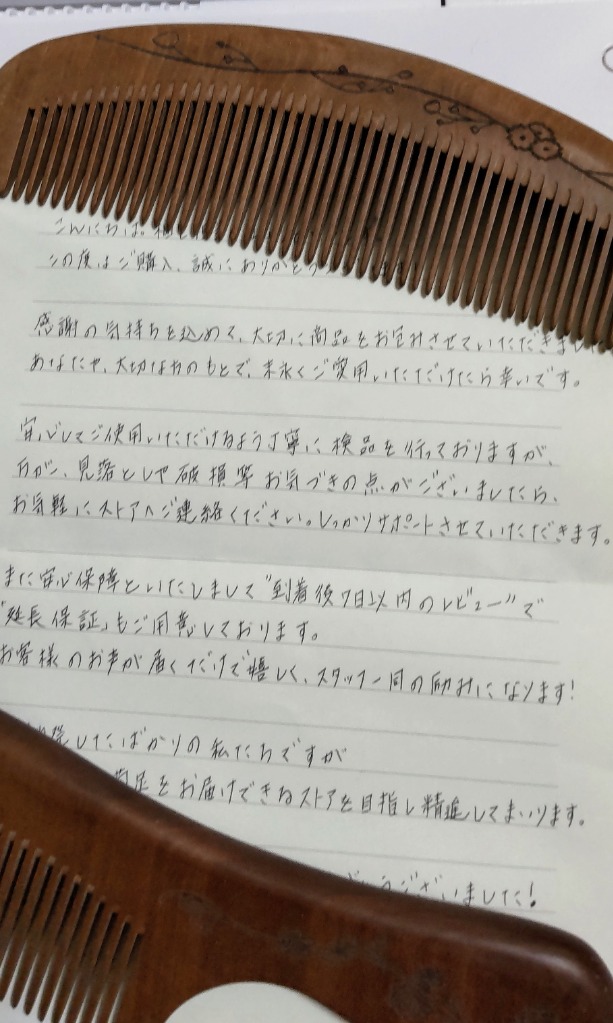 こんにちは。
この度はご購入、誠にありがとう
感謝の気持ちを込めて、大切に商品をお包みさせていただきまし
あなたや、大切な方のもとで、末永くご愛用いただけたら幸いです。
安心してご使用いただけるよう丁寧に検品を行っておりますが、
万が一、見落としや破損等お気づきの点がございましたら、
お気軽にストアへご連絡ください。しっかりサポートさせていただきます。
また安心保障といたしまして"到着後7日以内のレビュー"で
「延長保証」もご用意しております。
お客様のお声が届くだけで嬉しく、スタッフ一同の励みになります!
したばかりの私たちですが
満足をお届けできるストアを目指し精進してまいります。
うございました!